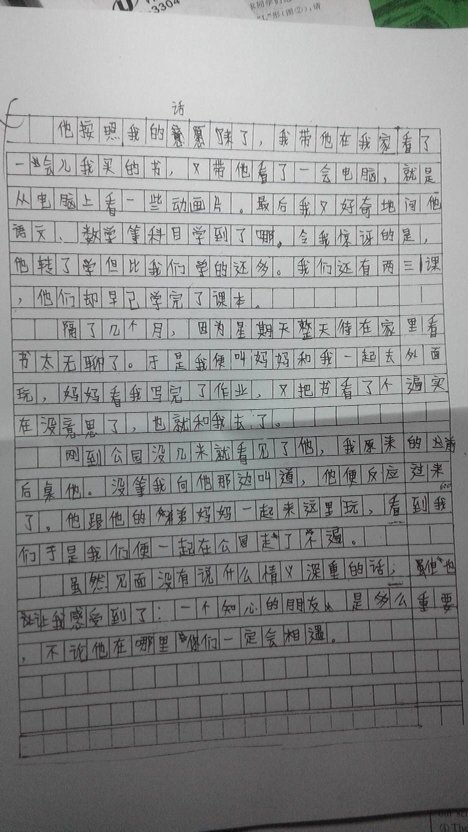 3304
话
他按照我的意愿来了，我带他在我家看了
一会儿我买的书，又带他看了一会电脑，就是
从电脑上看一些动画片。最后我又好奇地问他
语文、数学等科目学到了哪。令我惊讶的是，
他转了学但比我们学的还多。我们还有两三课
，他们却早已学完了课本。
隔了几个月，因为星期天整天待在家里看
书太无聊了。于是我便叫妈妈和我一起去外面
玩，妈妈看我写完了作业，又把书看了个遍实
在没意思了，也就和我去了。
刚到公园没几米就看见了他，我原来的
后桌他。没等我向他那边叫道，他便反应过来
了。他跟他的弟弟妈妈一起来这里玩，看到我
们于是我们便一起在公园走了个遍。
虽然见面没有说什么情义深重的话，但他也
让我感受到了：一个知心的朋友是多么重要
，不论他在哪里你们一定会相遇。